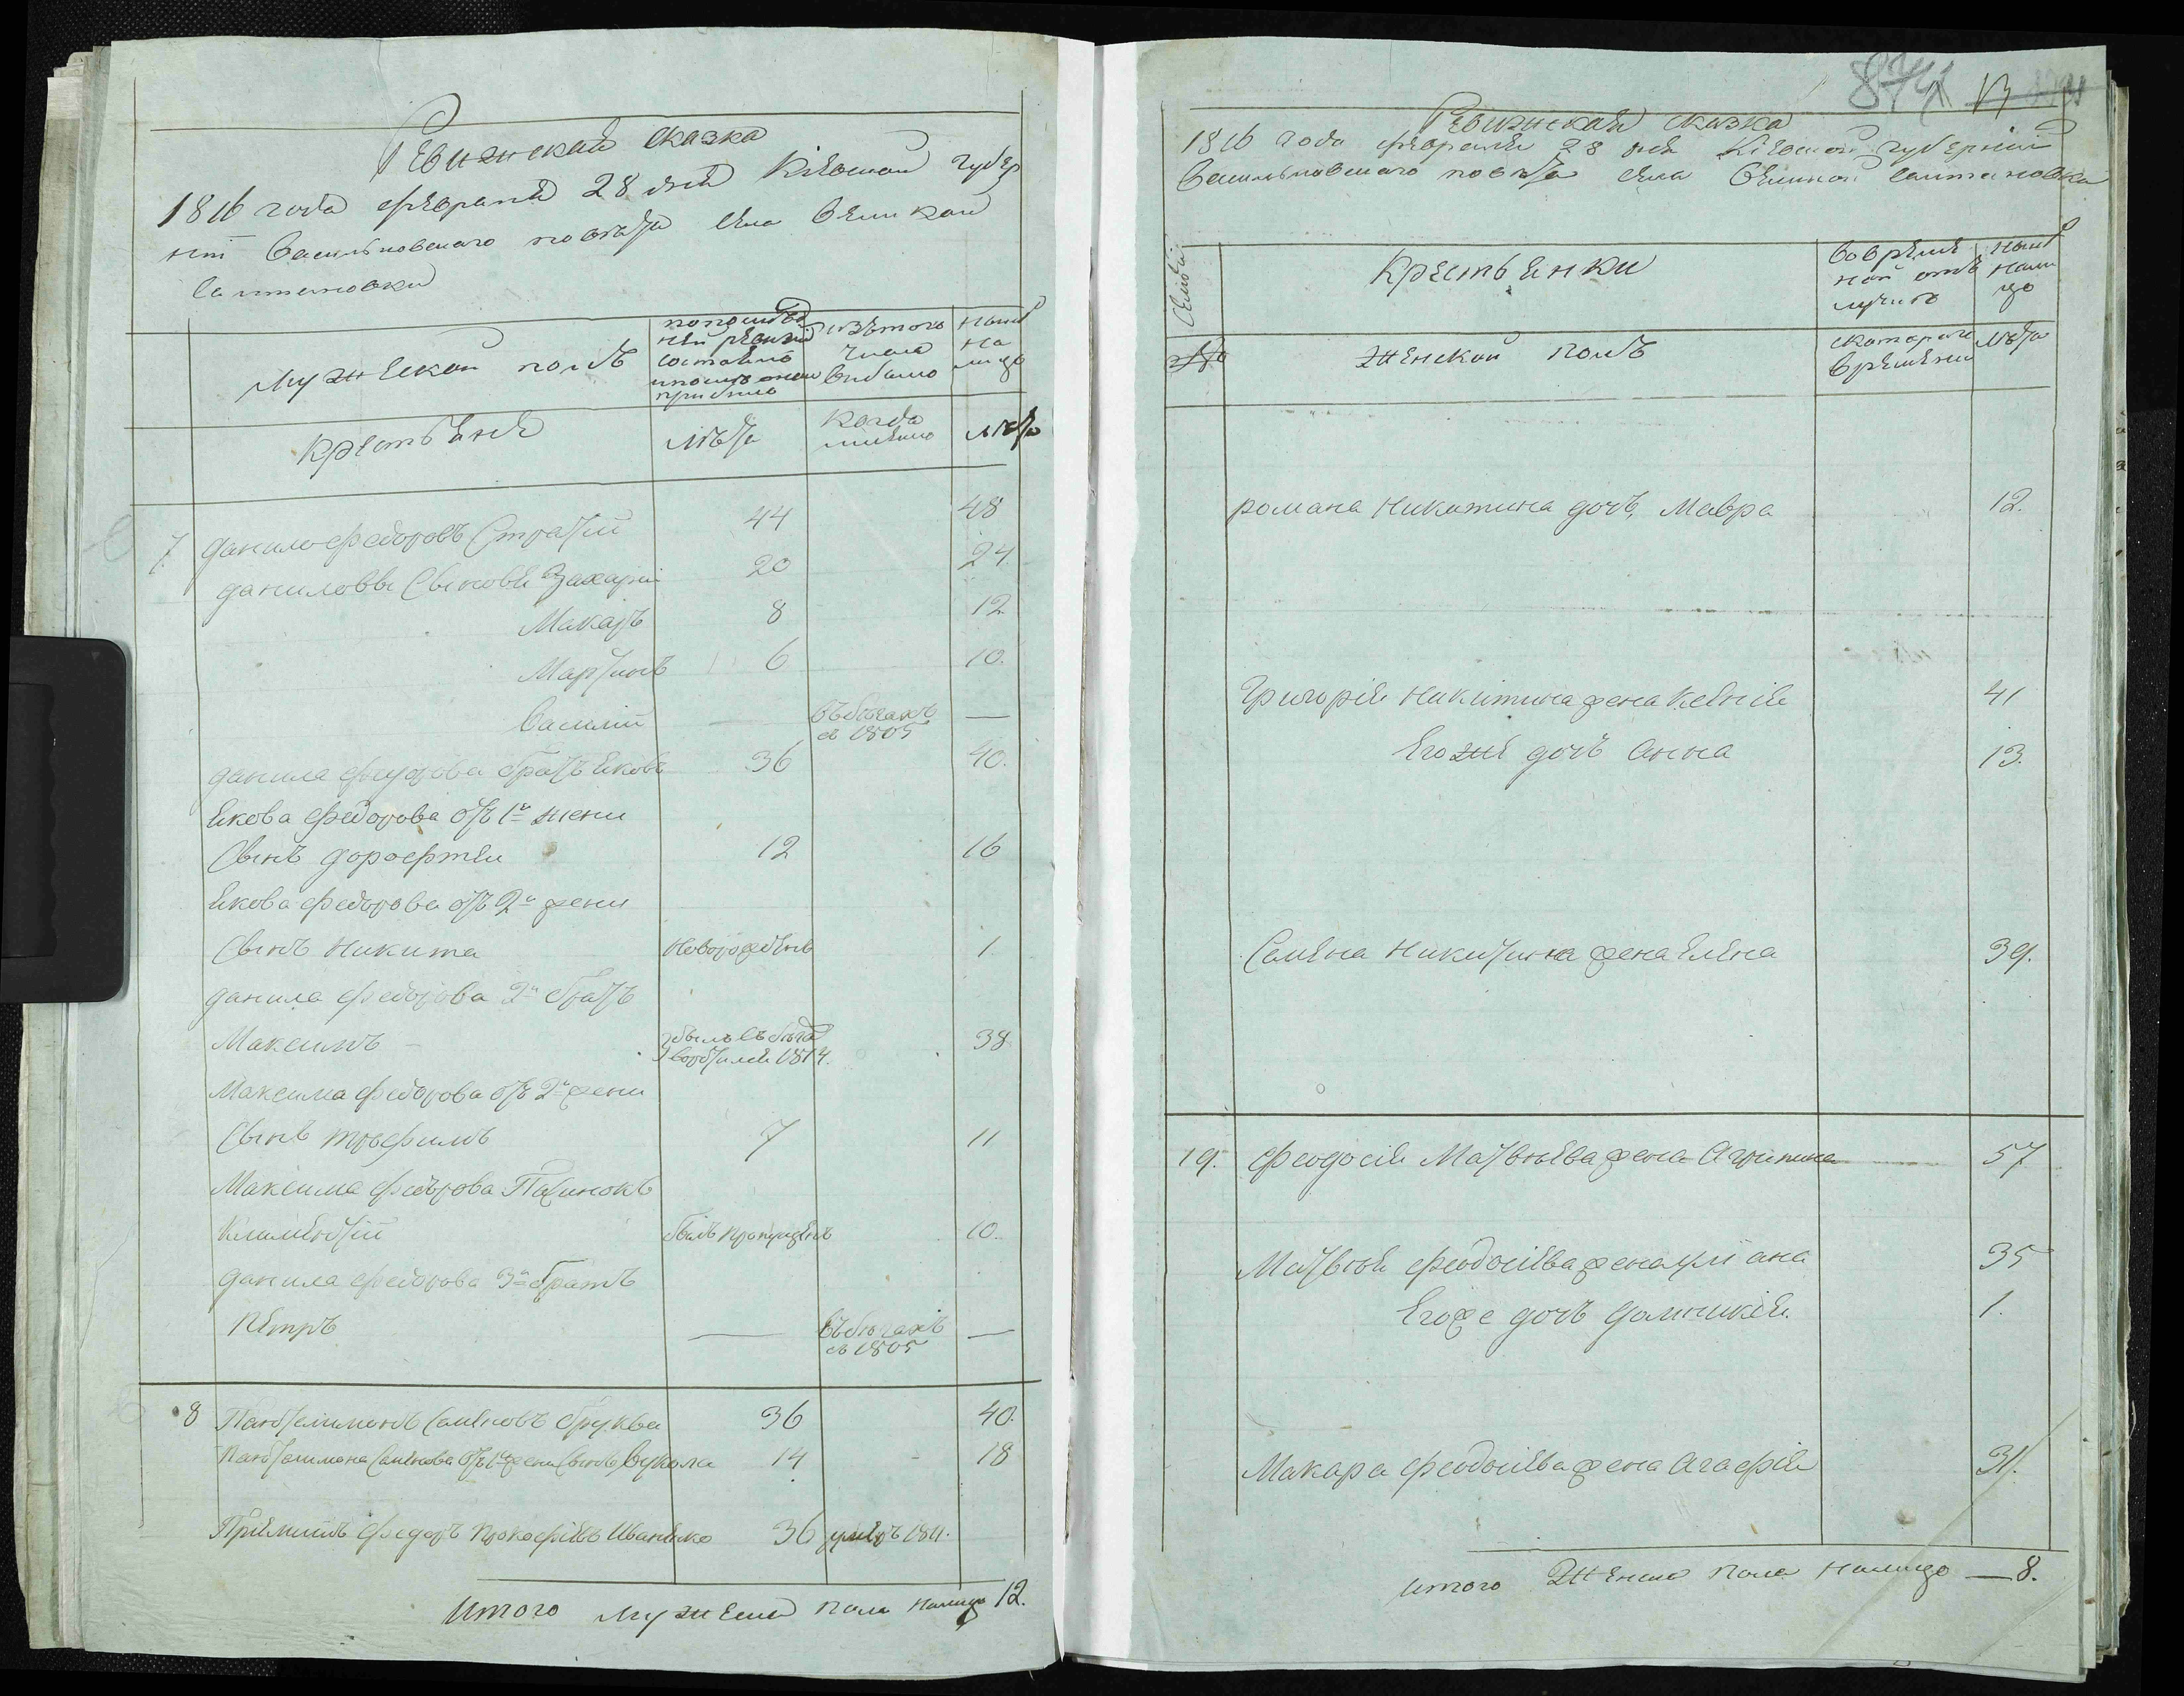 Ревизская сказка
1816 года февраля 28 дня Кіевской губер
ніи Васильковскаго повѣта села Великой
Салтановки
мужеской полъ
по послѣд
ней ревизіи
состояло
и послѣ оной
прибыло
изъ того
числа
выбыло
нынѣ
на
лицо
крестьяне
лѣта
когда
именно
лѣта
7 данило федоровъ Стратій 44 48
даниловы Сынове Захарій 20 24
Макаръ 8 12
Мартинъ 6 10.
Василій — въ бѣгахъ — 
съ 1805
данила федорова братъ Яковъ 36 40.
Якова федорова отъ 1й жени
Сынъ дорофтей 12 16
Якова федорова отъ 2й жени
Сынъ Никита новорожденъ 1
данила федорова 2й братъ
Максимъ былъ въ бѣгахъ 38
1814.
Максима федорова отъ 2й жени
Сынъ трофимъ 7 11
Максима федорова Пасинокъ
Климентій былъ пропущенъ 10.
данила федорова 3й братъ
Петръ — въ бѣгахъ —
съ 1805
8 Пантелимонъ Саменовъ бруква 36 40.
Пантелимона Саменова отъ 1й жени Сынъ Вукола 14 18
Приймитъ федоръ Прокофіевъ Иваненко 36 умеръ 1811.
Итого мужеска пола налицо 12.
874
Ревизская сказка
1816 года февраля 28 дня Кіевской губерніи
Васильковскаго повѣта села Великой Салтановки
Семьи
крестьянки
во времен
ной отлучкѣ
нынѣ
нали
цо
№
Женской полъ
с котораго
времени
лѣта
романа Никитина дочъ Мавра 12.
Григорія Никитина жена Ксенія 41
Его же дочъ Анна 13.
Самена Никитина жена Елена 39.
19. Феодосія Матвѣева жена Агрипина 57
Матвѣя феодосіева жена уліана 35
Его же дочъ домникія. 1.
Макара феодосіева жена Агафія 31.
итого Женска пола налицо — 8.